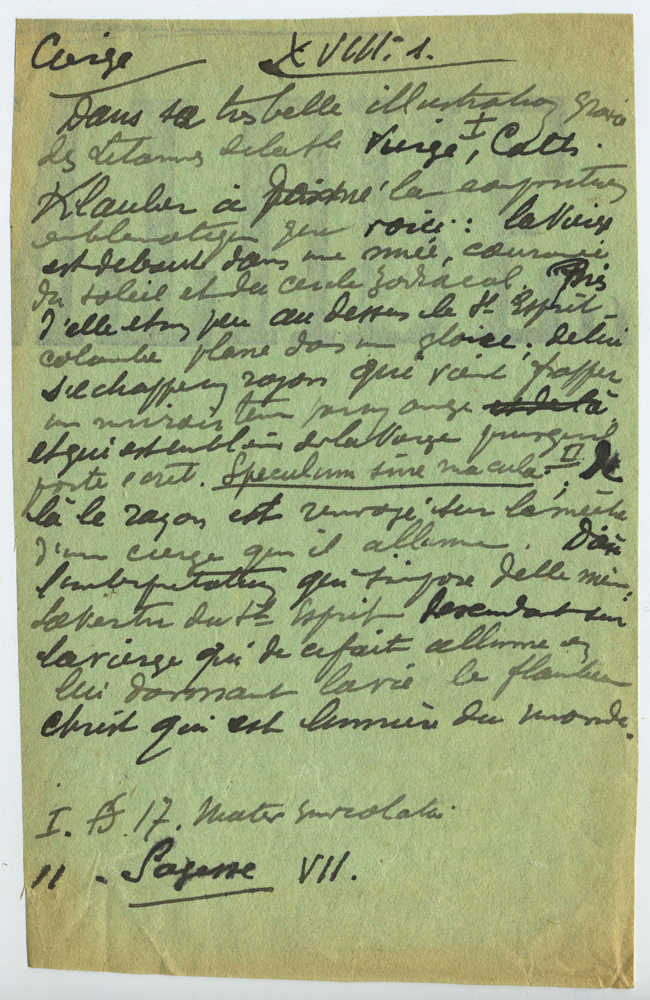 Cierge XVIIIe s.
Dans sa très belle illustration gravée
des Litanies de la Ste Vierge I, Cath.
Klauber a dessiné la composition
emblématique que voici : la Vierge
est debout dans une nuée, couronnée
du soleil et du cercle zodiacal. Près
d'elle et un peu au dessus le St Esprit-
colombe plane dans une gloire ; de lui
s'échappe un rayon qui vient frapper
un miroir tenu par un ange et de là
et qui est emblème de la Vierge puisqu'il
porte écrit. Speculum sine macula II ; De
là le rayon est renvoyé sur la mèche
d'un cierge qu'il allume. Dans
l'interprétation qui s'impose d'elle-même,
la vertu du St Esprit descendant sur
la vierge qui de ce fait allume en
lui donnant la vie le flambeau
Christ qui est lumière du monde.
I. 17. Mater
II - Sagesse VII.